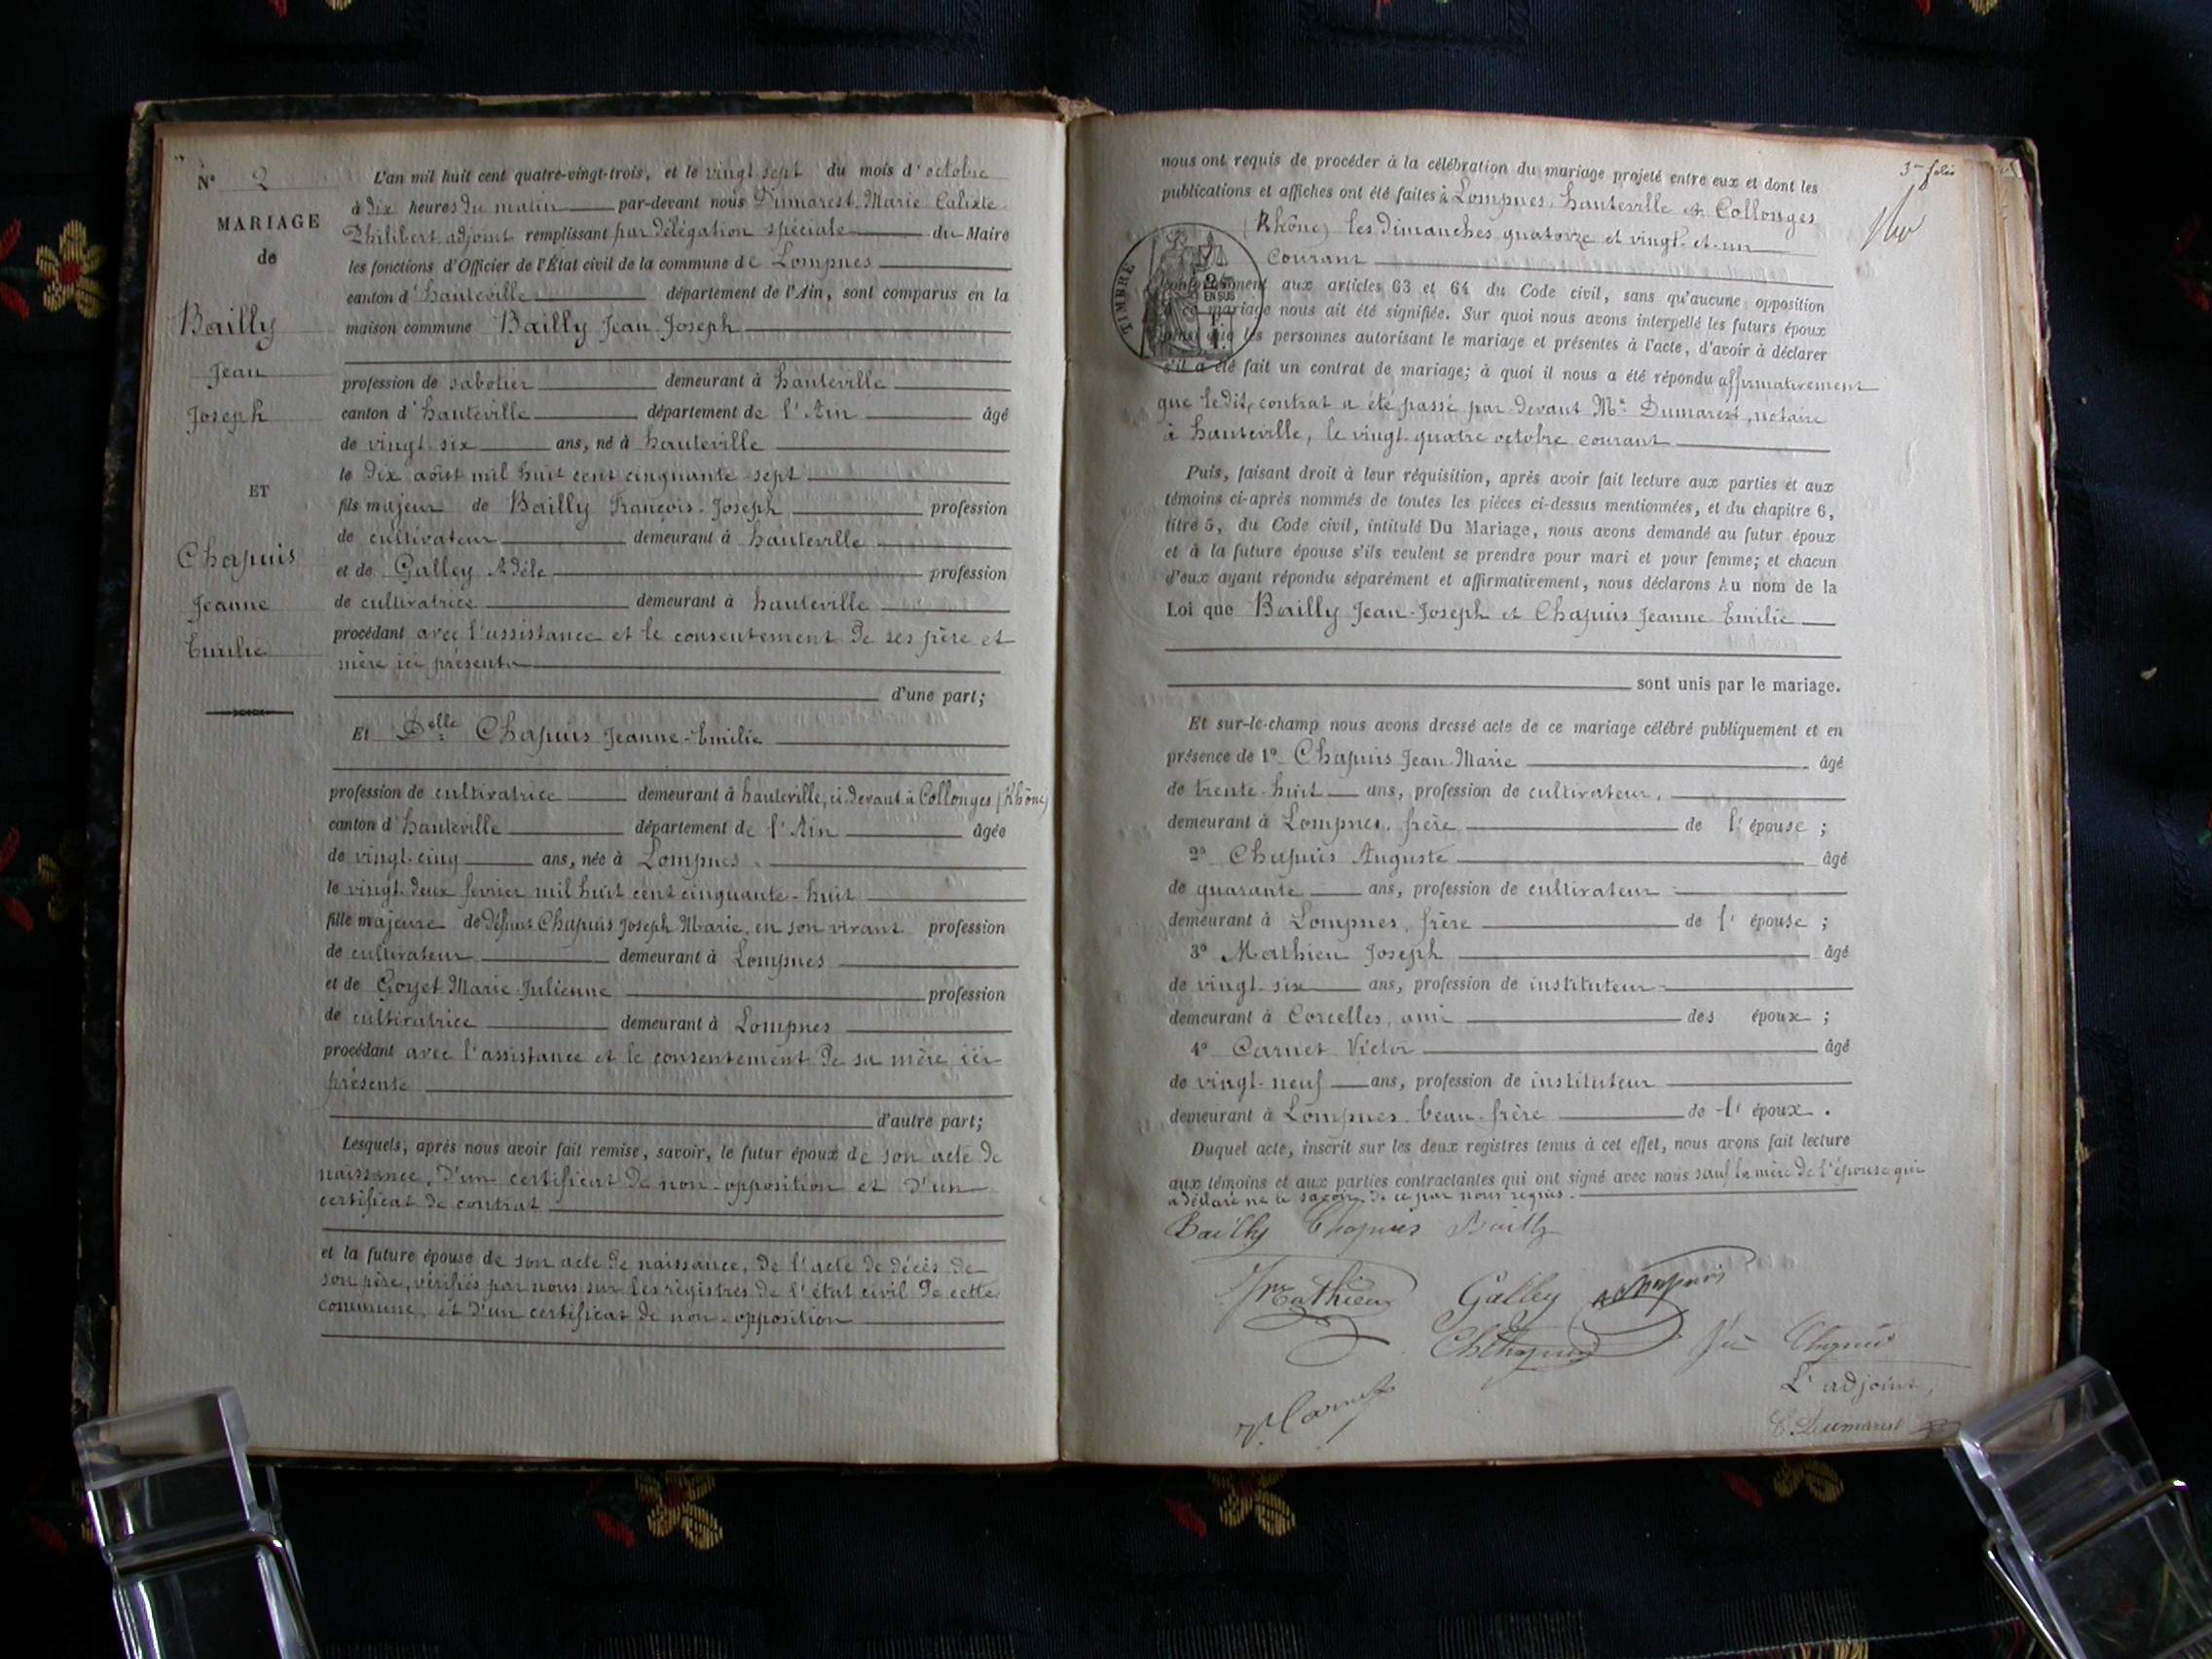 N° 2
MARIAGE
de
Bailly
Jean
Joseph
ET
Chapuis
Jeanne
Emilie
L'an mil huit cent quatre-vingt-trois, et le vingt sept du mois d'octobre
à dix heures du matin par-devant nous Dumarest, Marie Calixte
Philibert, adjoint remplissant par délégation spéciale du Maire
les fonctions d'Officier de l'État civil de la commune de Lompnes
canton d'hauteville département de l'Ain, sont comparus en la
maison commune Bailly Jean-Joseph
profession de sabotier demeurant à hauteville
canton d'hauteville département de l'Ain âgé
de vingt-six ans, né à hauteville
le dix août mil huit cent cinquante-sept
fils majeur de Bailly François-Joseph profession
de cultivateur demeurant à hauteville
et de Galley Adèle profession
de cultivatrice demeurant à hauteville
procédant avec l'assistance et le consentement de ses père et
mère ici présents
d'une part;
Et Delle Chapuis Jeanne-Emilie
profession de cultivatrice demeurant à hauteville, ci-devant à Collonges (Rhône)
canton d'hauteville département de l'Ain âgée
de vingt-cinq ans, née à Lompnes
le vingt-deux février mil huit cent cinquante-huit
fille majeure de défunt Chapuis Joseph Marie, en son vivant profession
de cultivateur demeurant à Lompnes
et de Goyet Marie-Julienne profession
de cultivatrice demeurant à Lompnes
procédant avec l'assistance et le consentement de sa mère ici
présente
d'autre part;
Lesquels, après nous avoir fait remise, savoir, le futur époux de son acte de
naissance, d'un certificat de non-opposition et d'un
certificat de contrat
et la future épouse de son acte de naissance, de l'acte de décès de
son père, vérifiés par nous sur les registres de l'état civil de cette
commune, et d'un certificat de non-opposition
3me folio
nous ont requis de procéder à la célébration du mariage projeté entre eux et dont les
publications et affiches ont été faites à Lompnes, hauteville et Collonges
(Rhône) les dimanches quatorze et vingt-et-un
courant
TIMBRE
EN SUS
conformément aux articles 63 et 64 du Code civil, sans qu'aucune opposition
mariage nous ait été signifiée. Sur quoi nous avons interpellé les futurs époux
ainsi que les personnes autorisant le mariage et présentes à l'acte, d'avoir à déclarer
s'il a été fait un contrat de mariage; à quoi il nous a été répondu affirmativement
que ledit contrat a été passé par devant Me Dumarest, notaire
à hauteville, le vingt-quatre octobre courant
Puis, faisant droit à leur réquisition, après avoir fait lecture aux parties et aux
témoins ci-après nommés de toutes les pièces ci-dessus mentionnées, et du chapitre 6,
titre 5, du Code civil, intitulé Du Mariage, nous avons demandé au futur époux
et à la future épouse s'ils veulent se prendre pour mari et pour femme; et chacun
d'eux ayant répondu séparément et affirmativement, nous déclarons Au nom de la
Loi que Bailly Jean-Joseph et Chapuis Jeanne Emilie
sont unis par le mariage.
Et sur-le-champ nous avons dressé acte de ce mariage célébré publiquement et en
présence de 1° Chapuis Jean-Marie âgé
de trente-huit ans, profession de cultivateur,
demeurant à Lompnes, frère de l'épouse;
2° Chapuis Auguste âgé
de quarante ans, profession de cultivateur
demeurant à Lompnes, frère de l'épouse;
3° Mathieu Joseph âgé
de vingt-six ans, profession de instituteur
demeurant à Corcelles, ami des époux;
4° Carnet Victor âgé
de vingt-neuf ans, profession de instituteur
demeurant à Lompnes, beau-frère de l'époux.
Duquel acte, inscrit sur les deux registres tenus à cet effet, nous avons fait lecture
aux témoins et aux parties contractantes qui ont signé avec nous sauf la mère de l'épouse qui
a déclaré ne le savoir, de ce par nous requis.
Bailly Chapuis Bailly
Mathieu Galley Chapuis
L'adjoint,
V. Carnet
C. Dumarest